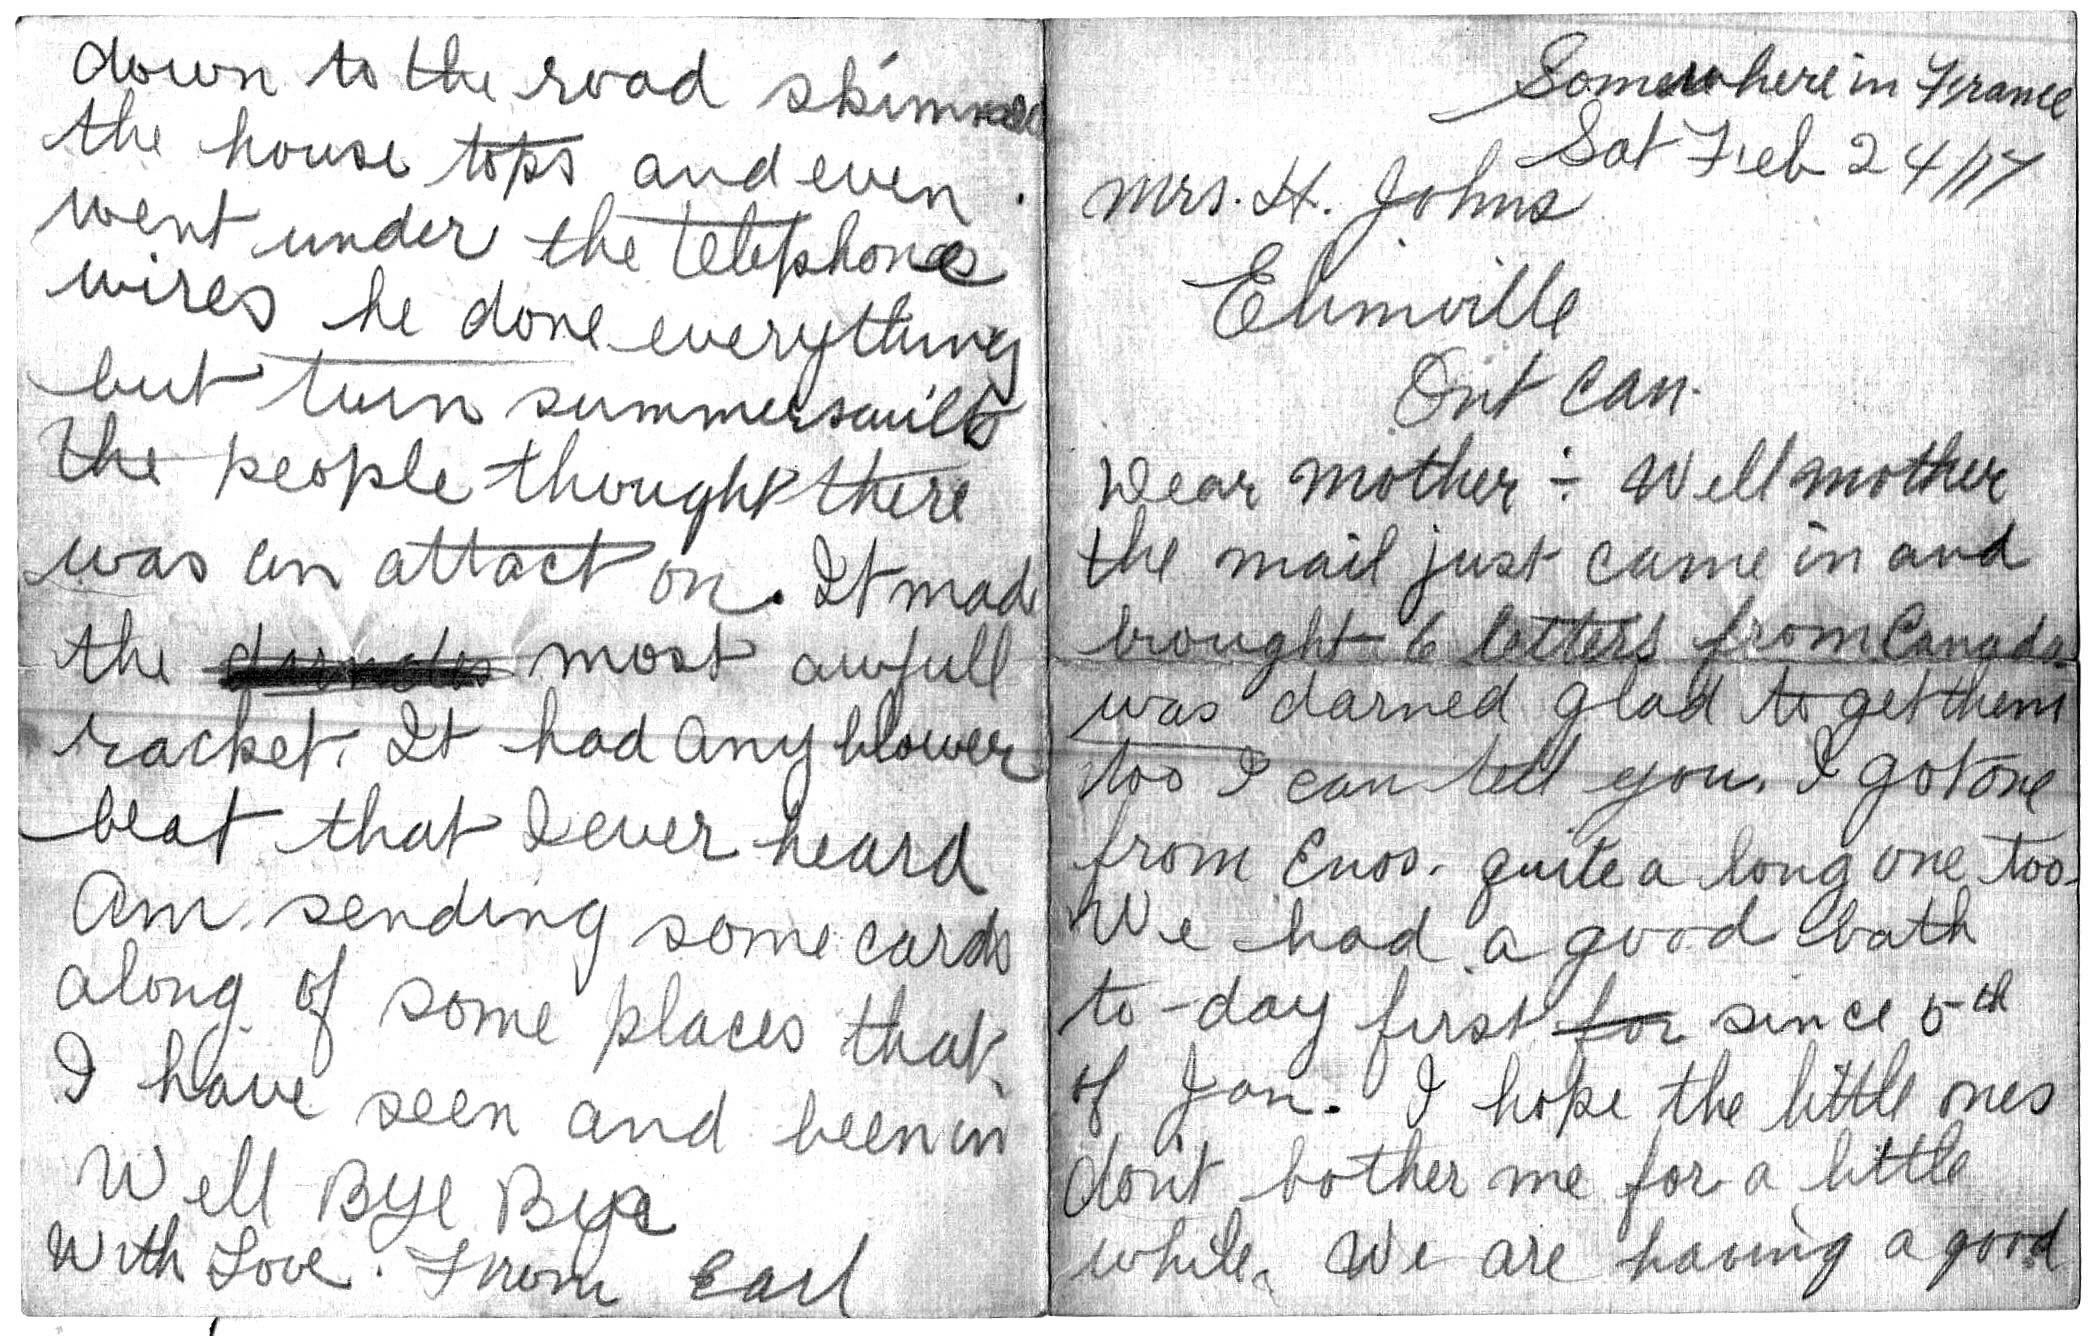 down to the road skimmed
the house tops and even
went under the telephones
wires he done everything
but turn summersaults
the people thought there
was an attact on. It mad
the most awfull
racket. It had any blower
beat that I ever heard
Am sending some cards
along of some places that
I have seen and been in
Well Bye Bye
With Love. From Earl
Somewhere in France
Sat Feb 24/17
Mrs. H. Johns
Elimville
Ont Can.
Dear Mother ÷ Well mother
the mail just came in and
brought 6 letters from Canada
was darned glad to get them
too I can tell you. I got one
from Enos. quite a long one too
We had a good bath
to-day first for since 5th
of Jan. I hope the little ones
don't bother me for a little
while. We are having a good